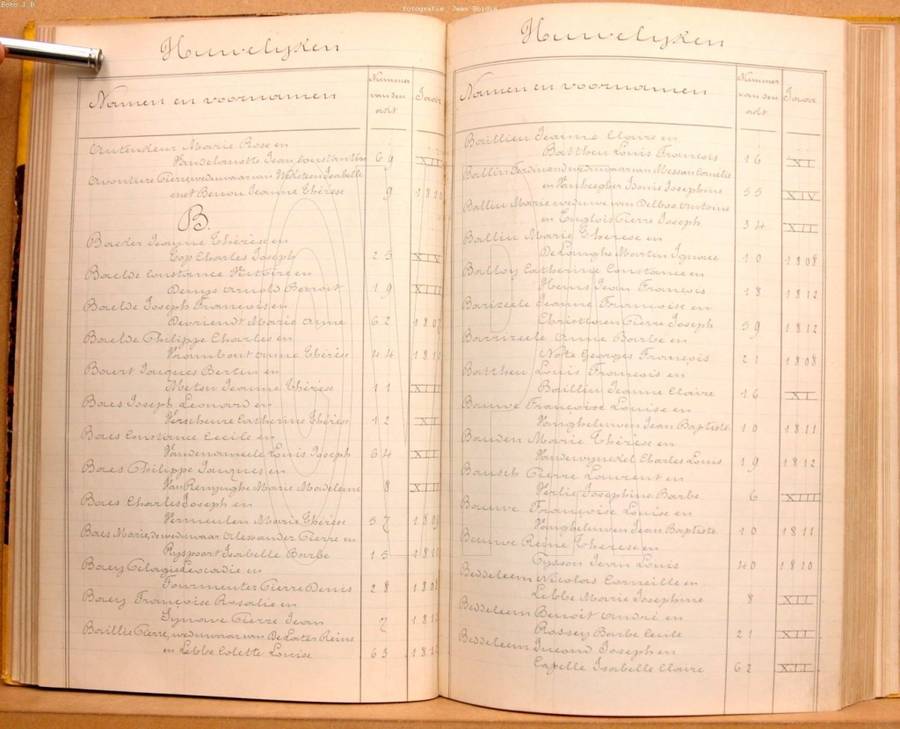 Foto J.B.
Fotografie, Jean
Huwelijken
Namen en voornamen
Nummer van den akt
Jaar
Marie Rose en
Vandelanotte Jean Constantin 69 XII
Pierre, weduwaar van Isabelle
en met Benou Jeanne Thérèse 9
B.
Baeder Jeanne Thérèse en
Top Charles Joseph 25 XIX
Baelde Constance Victoire en
Denys Arnold Benoit 19 XIII
Baelde Joseph François en
Devriendt Marie Anne 62 1807
Baelde Philippe Charles en
Anne Thérèse 44
Baert Jacques Bertin en
Metsu Jeanne Thérèse 11 XII
Baes Joseph Leonard en
Verscheure Catherine Thérèse 12 XII
Baes Constance Cecile en
Vandenameele Louis Joseph 64 XII
Baes Philippe Jacques en
Van Renynghe Marie Madeleine 8 XIII
Baes Charles Joseph en
Vermeulen Marie Thérèse 57
Baes Marie, weduwaar Alexander Pierre en
Isabelle Barbe 15
Baey en
Fourmentez Pierre Denis 28
Baey Françoise Rosalie en
Pierre Jean 7
Baillie Pierre, weduwaar van De Later Reine
en Lebbe Colette Louise 63
Huwelijken
Namen en voornamen
Nummer van den akt
Jaar
Baillieu Jeanne Claire en
Battheu Louis François 16 XI
Ballin Ferdinand weduwaar van
en Vanheeghe Louis Josephine 55 XIV
Ballin Marie weduwe van Delbae Antoine
en Englois Pierre Joseph 34 XII
Ballin Marie Thérèse en
De Langhe Martin Ignace 10 1808
Balloy Catherine Constance en
Jean François 18 1812
Barizeele Jeanne Françoise en
Christiaen Pierre Joseph 59 1812
Barizeele Anne Barbe en
Georges François 21 1808
Battheu Louis François en
Baillieu Jeanne Claire 16 XI
Bauwe Françoise Louise en
Vangheluwen Jean Baptiste 10 1811
Bauden Marie Thérèse en
Vandewynckel Charles Louis 19 1812
Pierre Laurent en
Verlie Josephine Barbe 6 XIII
Bauwe Françoise Louise en
Vangheluwen Jean Baptiste 10 1811
Bauwe Reine Thérèse en
Tysson Jean Louis 40 1810
Bedeleem Nicolas Corneille en
Lebbe Marie Josephine 8 XII
Bedeleem Benoit André en
Rassey Barbe 21 XII
Bedeleem Joseph en
Capelle Isabelle Claire 62 XII